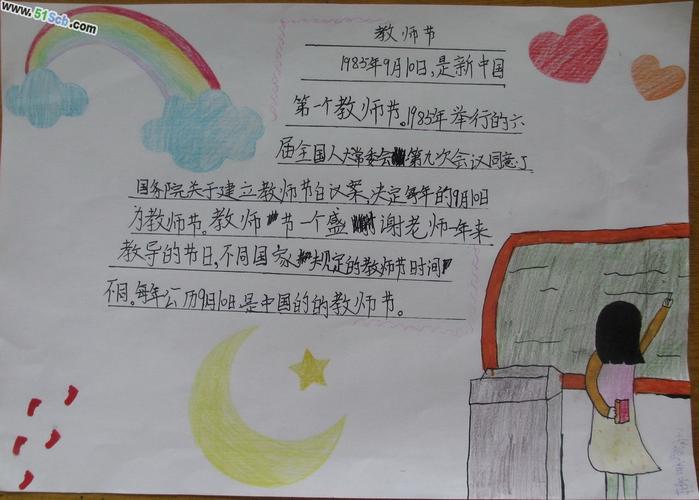 www.51Scb.com
教师节
1985年9月10日,是新中国
第一个教师节。1985年举行的六
届全国人大常委会第九次会议同意了
国务院关于建立教师节白议案,决定每年的9月10日
为教师节。教师节一个盛谢老师一年来
教导的节日,不同国家规定的教师节时间
不同。每年公历9月10日是中国的的教师节。